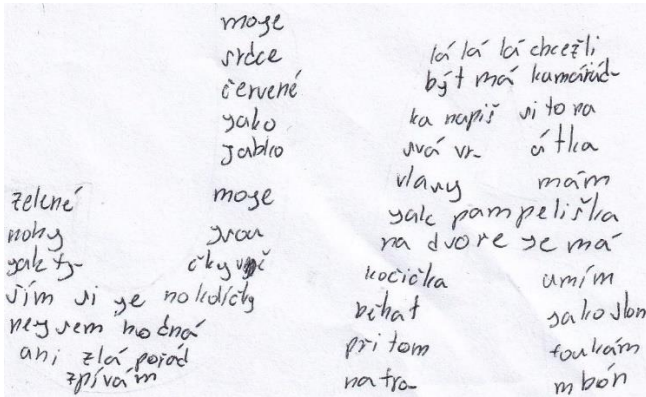 moje
srdce
červené
jako
jablko
zelené moje
nohy jsou
jak ty- čky
ším si je na kolíčky
nejsem hodná
ani zlá pořád
zpívám
lá lá lá chcežli
být má kamarád-
ka napiš si to na
svá vr- átka
vlasy mám
jak pampeliška
na dvoře je má
kočička umím
běhat jako slon
při tom foukám
na tro- mbón